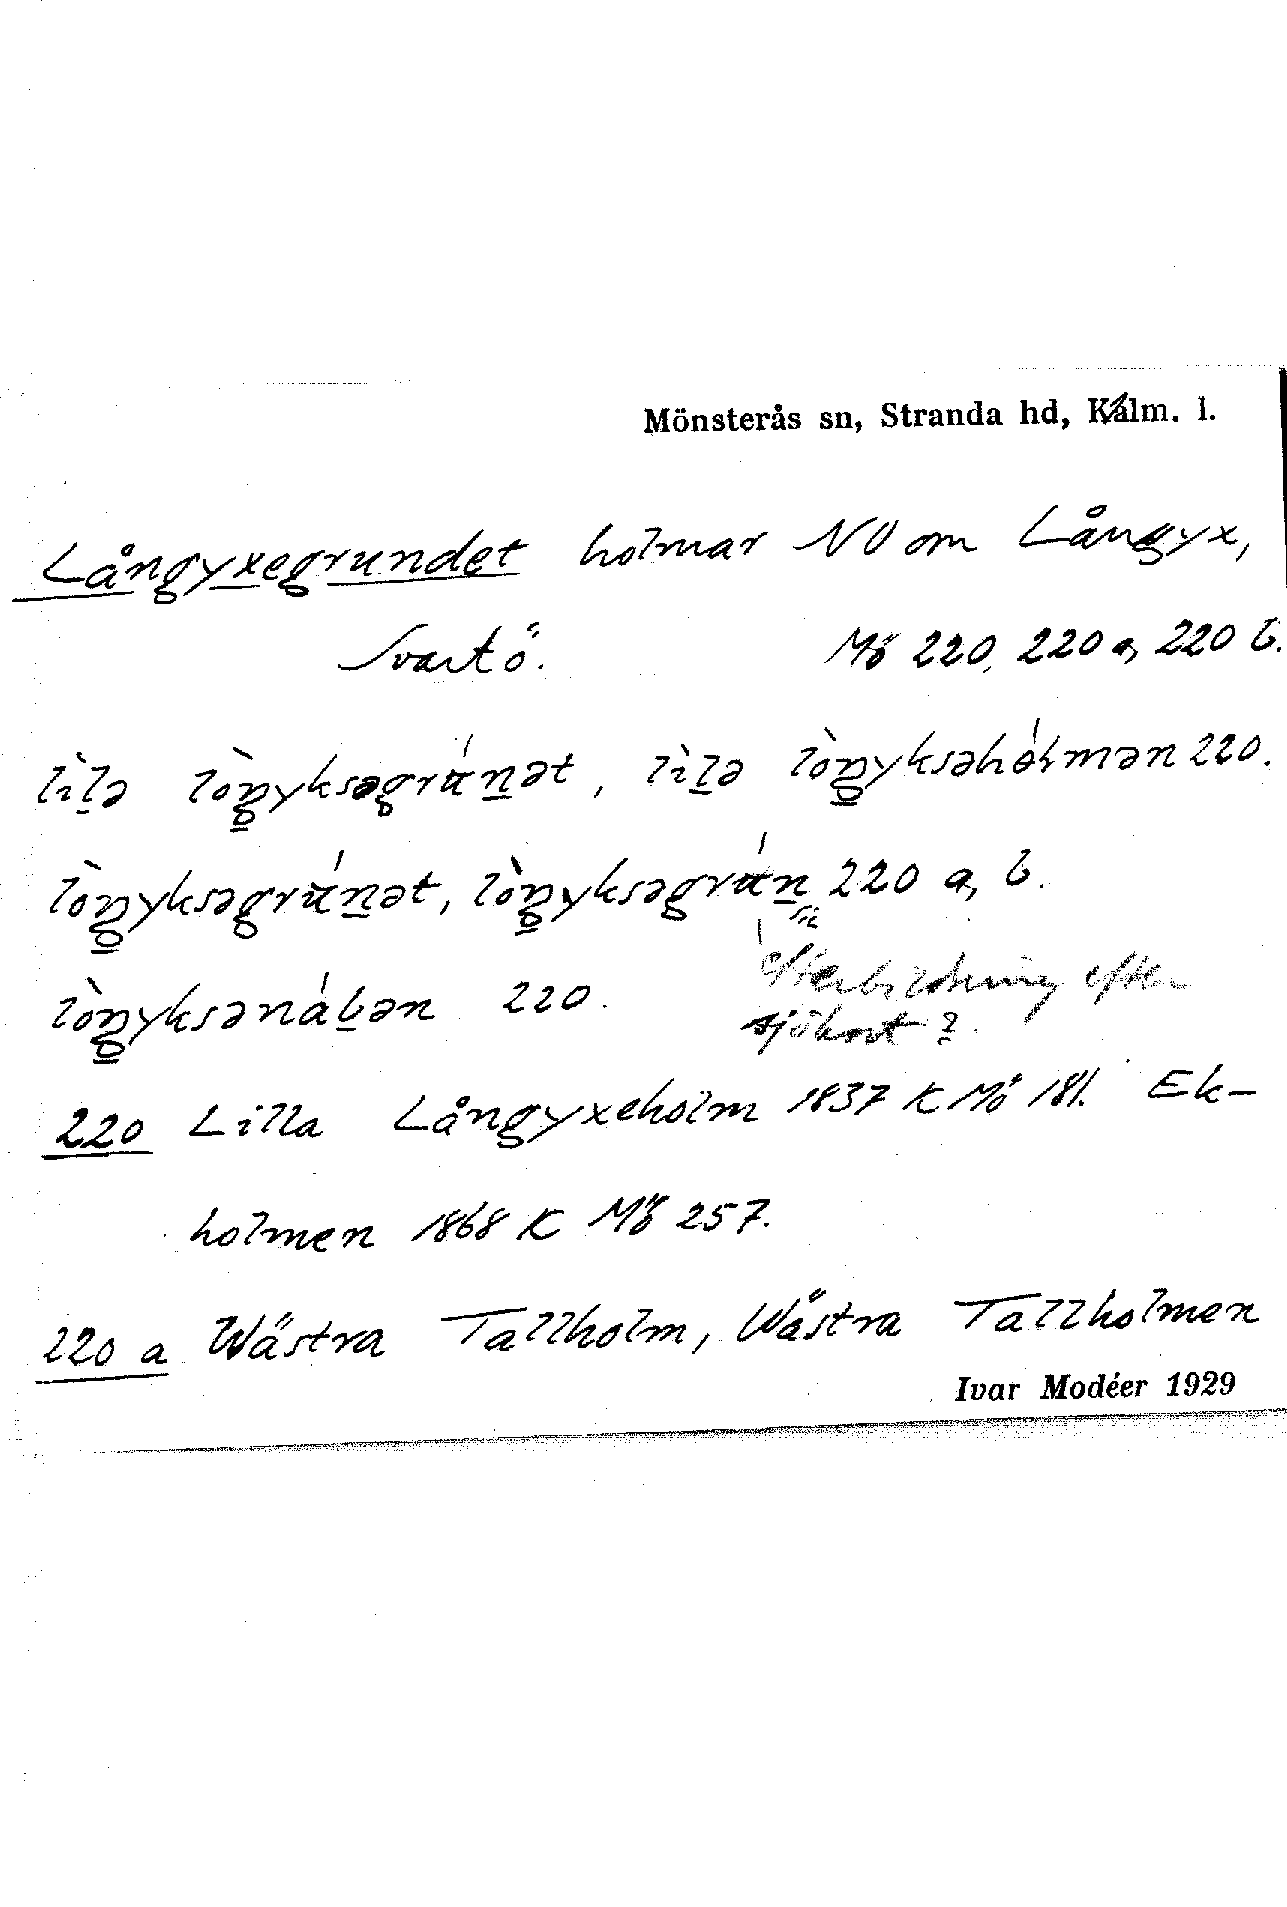 Mönsterås sn, Stranda hd, Kalm. l.
Långyxegrundet holmar NO om Långyx,
Svartö. Mö 220, 220 a, 220 b.
lìl̠ə lòŋyksəgrún̠ət, lìl̠ə lòŋyksəhólmən 220.
lòŋyksəgrún̠ət, lòŋyksəgrún̠ 220 a, b.
sic
lòŋyksənáb̠ən 220. efterbildning efter
sjökort?
220 Lilla Långyxeholm 1837 K Mö 181. Ek-
holmen 1868 K Mö 257.
220 a Wästra Tallholm, Wästra Tallholmen
Ivar Modéer 1929